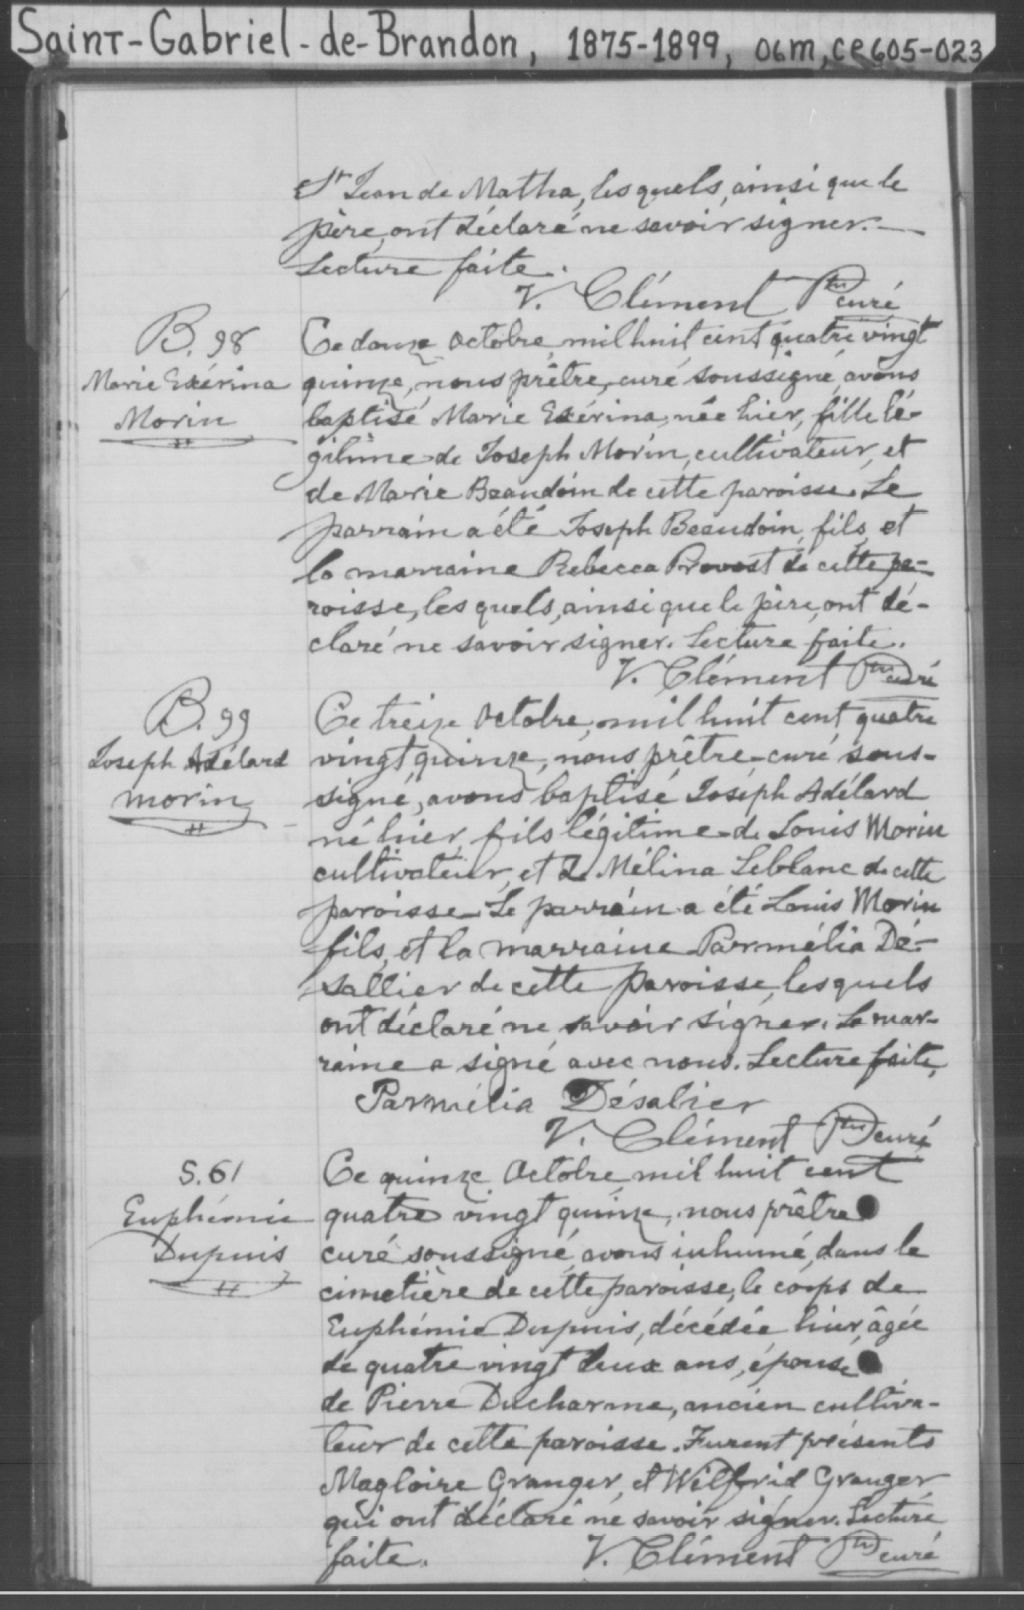 Saint-Gabriel-de-Brandon, 1875-1899, 06m, ce605-023
St Jean de Matha, lesquels, ainsi que le
père, ont déclaré ne savoir signer. —
Lecture faite.
V. Clément Ptre curé
B. 98
Marie Exérina
Morin
Ce douze Octobre, mil huit cent quatre vingt
quinze, nous prêtre, curé soussigné, avons
baptisé Marie Exérina, née hier, fille lé-
gitime de Joseph Morin, cultivateur, et
de Marie Beaudoin de cette paroisse. Le
parrain a été Joseph Beaudoin, fils, et
la marraine Rebecca Provost de cette pa-
roisse, lesquels, ainsi que le père, ont dé-
claré ne savoir signer. Lecture faite.
V. Clément Ptre curé
B. 99
Joseph Adélard
Morin
Ce treize Octobre, mil huit cent quatre
vingt quinze, nous prêtre-curé sous-
signé, avons baptisé Joseph Adélard
né hier, fils légitime de Louis Morin
cultivateur, et de Mélina Leblanc de cette
paroisse. Le parrain a été Louis Morin
fils, et la marraine Parmélia Dé-
sallier de cette paroisse, lesquels
ont déclaré ne savoir signer. La mar-
raine a signé avec nous. Lecture faite.
Parmélia Désalier
V. Clément Ptre curé
S. 61
Euphémie
Dupuis
Ce quinze Octobre, mil huit cent
quatre vingt quinze, nous prêtre
curé soussigné, avons inhumé, dans le
cimetière de cette paroisse, le corps de
Euphémie Dupuis, décédée hier, âgée
de quatre vingt deux ans, épouse
de Pierre Ducharme, ancien cultiva-
teur de cette paroisse. Furent présents
Magloire Granger, et Wilfrid Granger
qui ont déclaré ne savoir signer. Lecture
faite. V. Clément Ptre curé